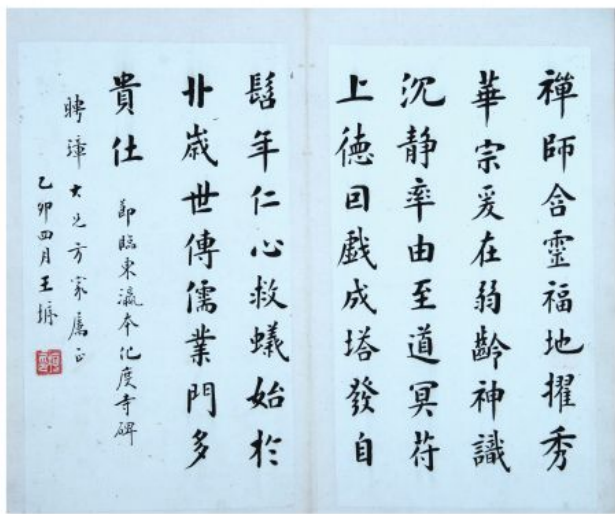 禪師含靈福地擢秀
華宗爰在弱齡神識
沉静率由至道冥苻
上德因戲成塔發自
髫年仁心救蟻始於
廿歲世傳儒業門多
貴仕
節臨東瀛本化度寺碑
聘璋大兄方家屬正
乙卯四月王墀